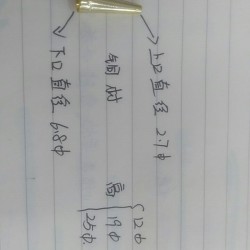 上口直径 2.7φ
铜材
高 { 12φ
19φ
25φ
下口直径 6.8φ